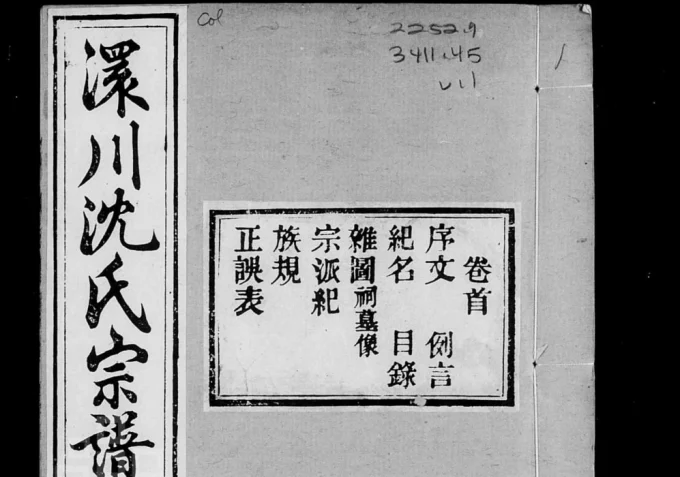 Col
2252.9
3411.45
v.1
1
卷首
序文 例言
紀名 目錄
雜圖祠墓像
宗派紀
族規
正誤表
澴川沈氏宗譜